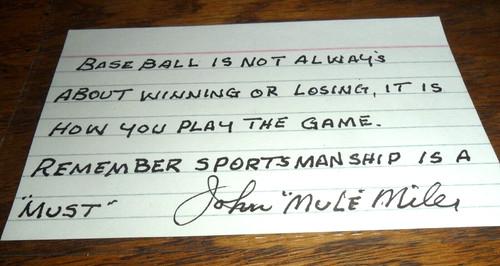 BASEBALL IS NOT ALWAYS
ABOUT WINNING OR LOSING, IT IS
HOW YOU PLAY THE GAME.
REMEMBER SPORTSMANSHIP IS A
"MUST" John "MULE" Miles